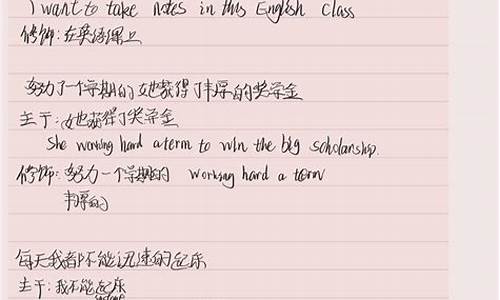 I want to take notes in this English class
修饰:在英语课上
努力了一个学期的她获得了丰厚的奖学金
主干:她获得了奖学金
She working hard a term to win the big scholarship.
修饰:努力一个学期的 working hard a term
丰厚的
每天我都不能迅速的起床
主干:我不能起床